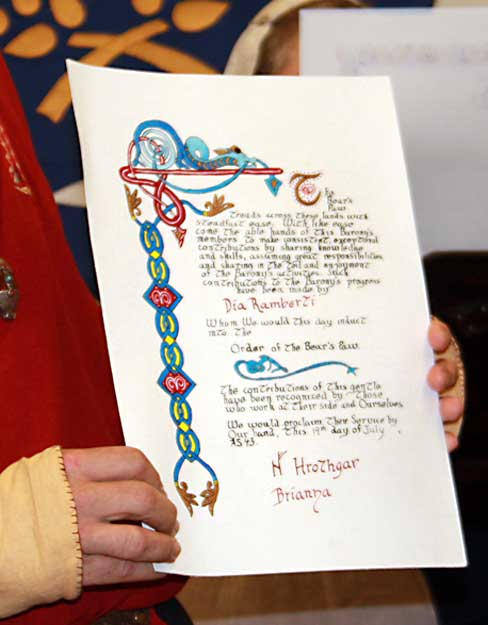 The
Bear's
Paw
treads across these lands with
steadfast ease. With like ease
come the able hands of this Barony's
members to make consistent, exceptional
contributions by sharing knowledge
and skills, assuming great responsibilities
and sharing in the toil and enjoyment
of the Barony's activities. Such
contributions to the Barony's progress
have been made by
Dia Ramberti
Whom We would this day induct
into the
Order of the Bear's Paw.
The contributions of this gentle
have been recognized by those
who work at their side and Ourselves
We would proclaim their Service by
Our hand, this 19th day of July
Hrothgar
Brianna